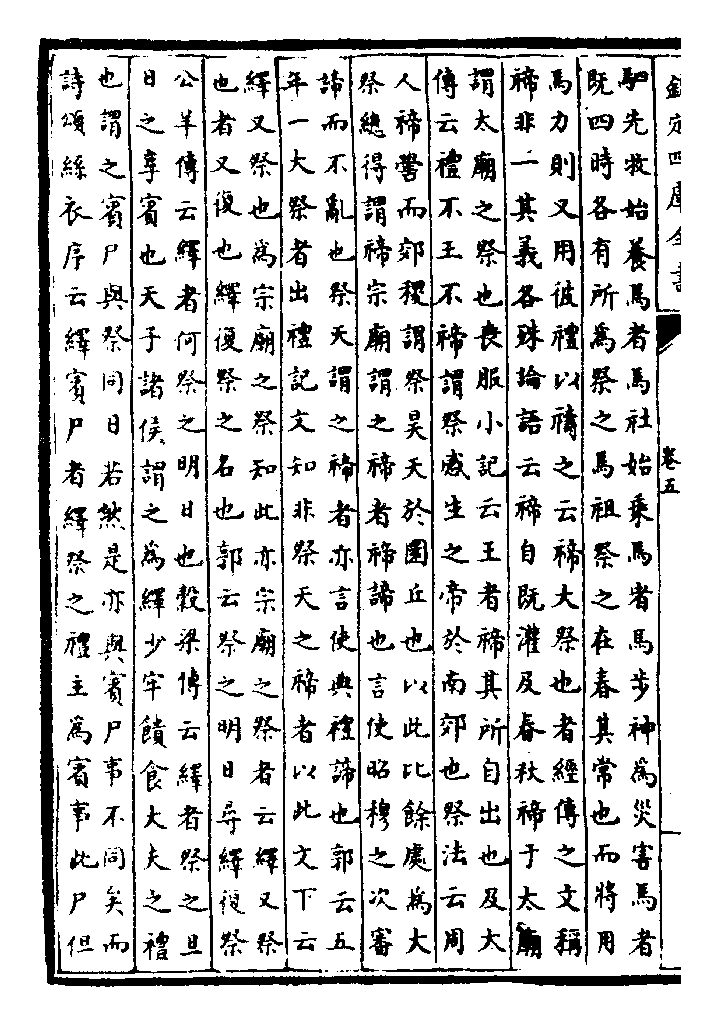 欽定四庫全書
卷五
駟先牧始養馬者馬社始乘馬者馬步神為災害馬者
既四時各有所為祭之馬祖祭之在春其常也而將用
馬力則又用彼禮以禱之云禘大祭也者經傳之文稱
禘非一其義各殊論語云禘自既灌及春秋禘于太廟
謂太廟之祭也喪服小記云王者禘其所自出也及大
傳云禮不王不禘謂祭感生之帝於南郊也祭法云周
人禘嚳而郊稷謂祭昊天於圜丘也以此比餘處為大
祭總得謂禘宗廟謂之禘者禘諦也言使昭穆之次審
諦而不亂也祭天謂之禘者亦言使典禮諦也郭云五
年一大祭者出禮記文知非祭天之禘者以此文下云
繹又祭也為宗廟之祭知此亦宗廟之祭者云繹又祭
也者又復也繹復祭之名也郭云祭之明日尋繹復祭
公羊傳云繹者何祭之明日也穀梁傳云繹者祭之旦
日之享賓也天子諸侯謂之為繹少牢饋食大夫之禮
也謂之賓尸與祭同日若然是亦與賓尸事不同矣而
詩頌絲衣序云繹賓尸者繹祭之禮主為賓事此尸但